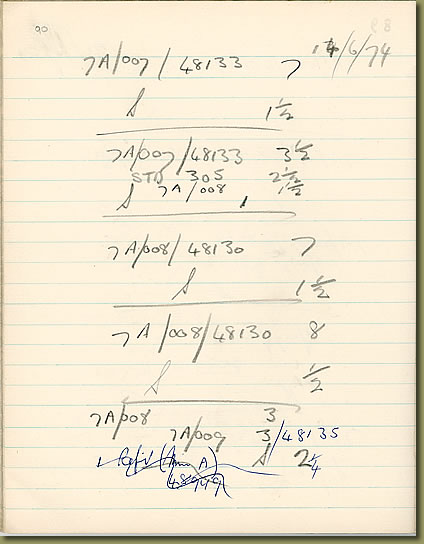 90
7A/007/48133 7 14/6/74
S 1½
7A/007/48133 3½
STD 305 2½
S 7A/008 1½
7A/008/48130 7
S 1½
7A/008/48130 8
S ½
7A/008 3
7A/009 3/48135
S 2¼
48949